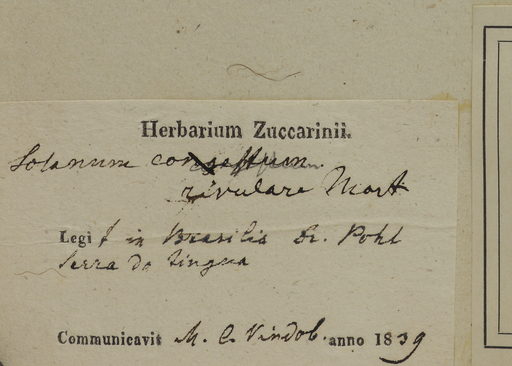 Herbarium Zuccarinii.
Solanum congestum.
rivulare Mart
Legit in Brasilia Dr. Pohl
Serra do Tingua
Communicavit M. C. Vindob. anno 1839